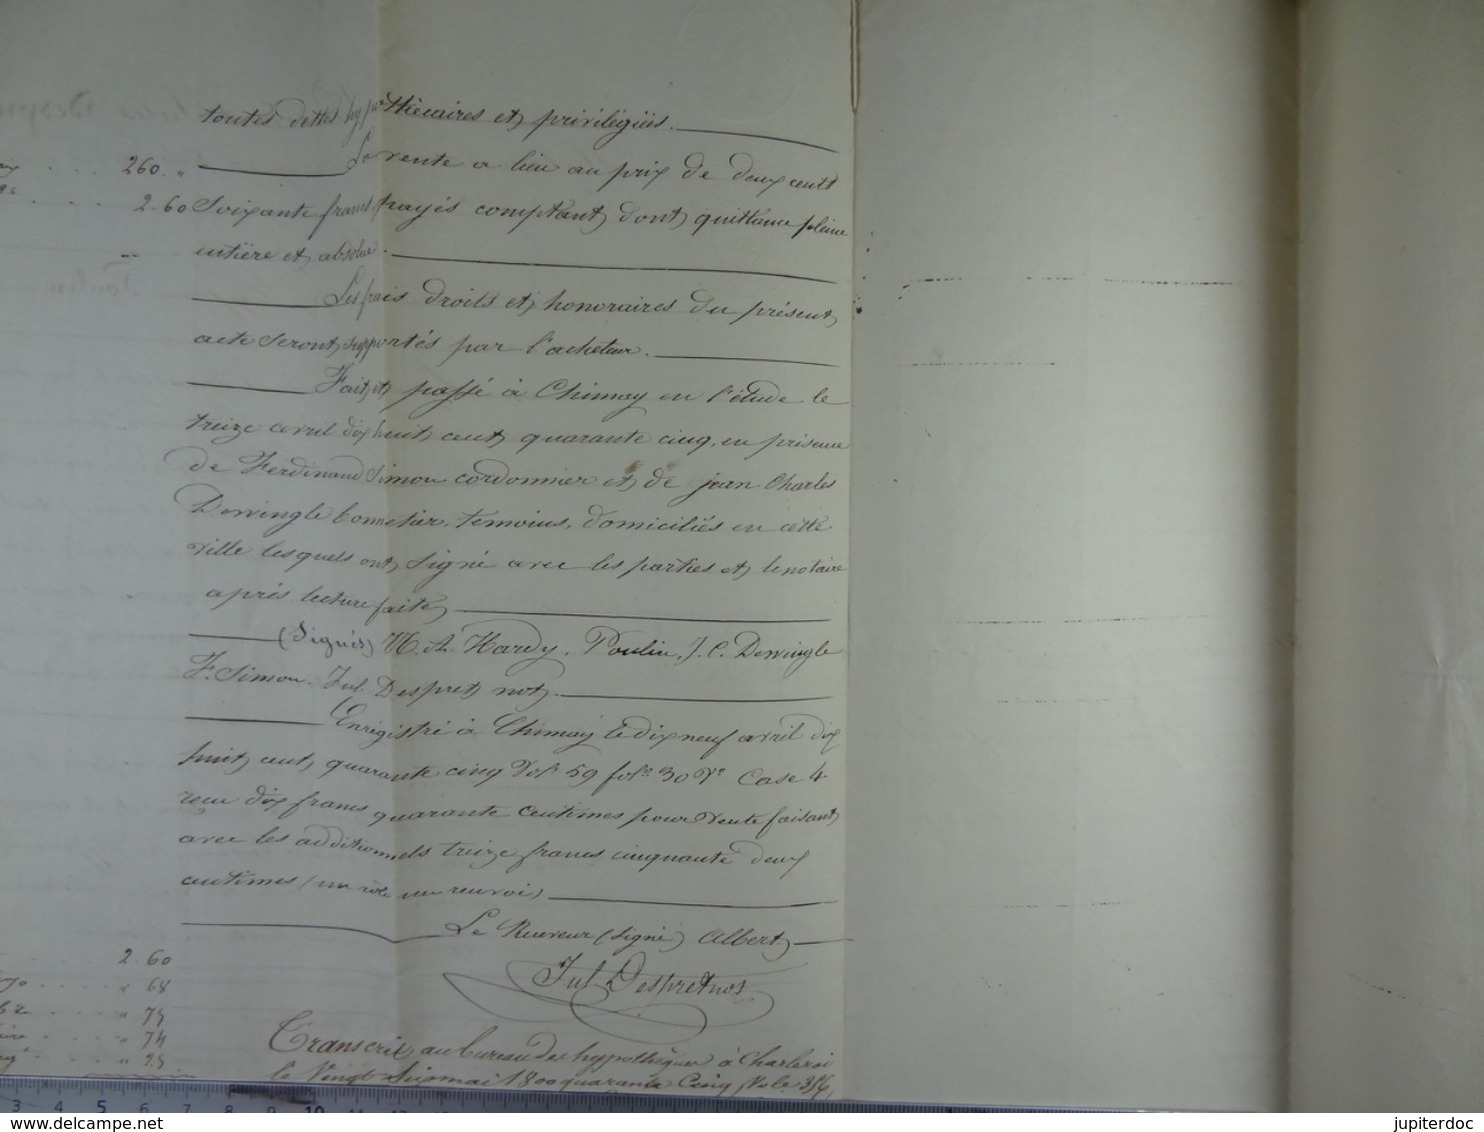 toutes dettes hypothécaires et privilégiées.
La vente a lieu au prix de deux cents
260. "
2.60
Soixante francs payés comptant dont quittance pleine
entière et absolue.
Les frais droits et honoraires du présent
acte seront supportés par l'acheteur.
Fait et passé à Chimay en l'étude le
treize avril dix huit cent quarante cinq, en présence
de Ferdinand Simon cordonnier et de jean Charles
Derwingle bonnetier, temoins, domiciliés en cette
ville lesquels ont signé avec les parties et le notaire
après lecture faite
(Signés) M. A. Hardy, Poulin, J. C. Derwingle
F. Simon. Jul. Despret not.
Enregistré à Chimay le dix neuf avril dix
huit cent quarante cinq Vol. 59 fol. 30 Vo Case 4
recu dix francs quarante centimes pour vente faisant
avec les additionnels treize francs cinquante deux
centimes (un rôle un renvoi)
Le Receveur (signé) Albert
Jul Despret not
2.60
" 68
" 75
" 74
" 25
Transcrit au bureau des hypothèques à Charleroi
le Vingt Six mai 1800 quarante Cinq, Vol. 314,
3 4 5 6 7 8 9 10 11 12
jupiterdoc